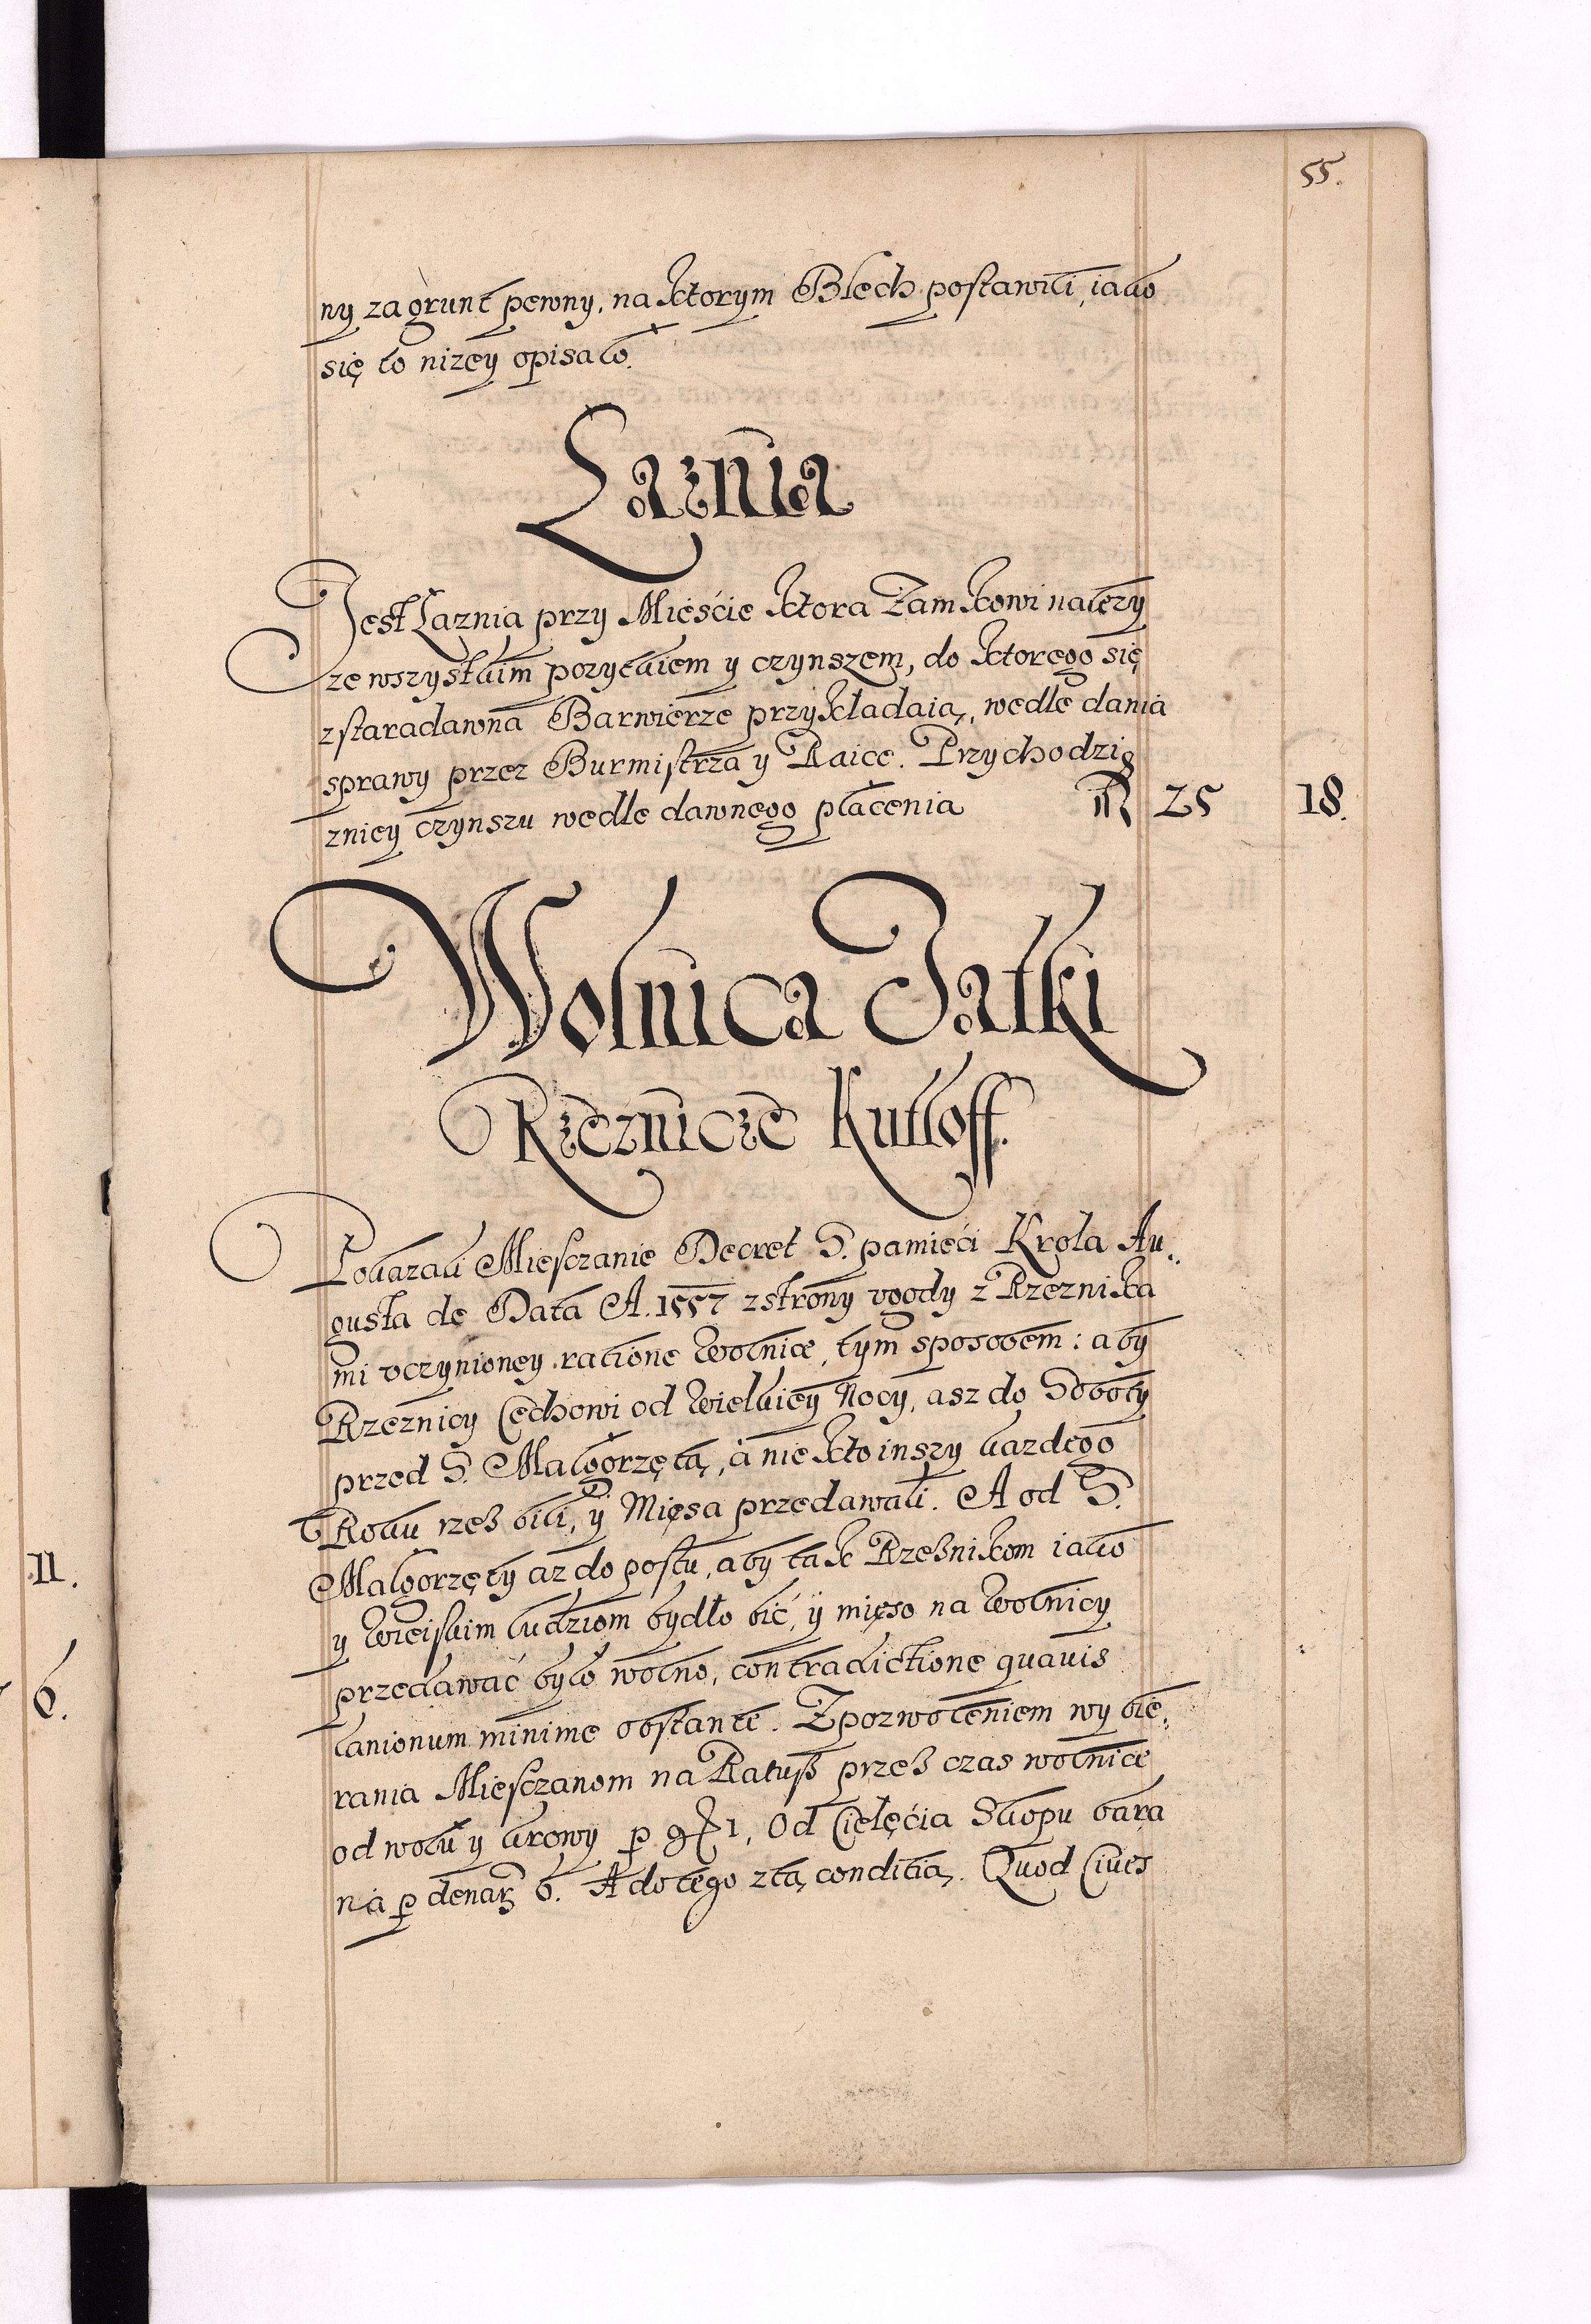 55.
ny za grunt pewny, na ktorym Blech postawili, iako
się to nizey opisało.
Łaznia
Jest Łaznia przy Mieście ktora Zamkowi nalezy
ze wszystkim pozytkiem y czynszem, do ktorego się
z staradawna Barwierze przykładaią, wedle dania
sprawy przez Burmistrza y Raice. Przychodzi
zniey czynszu wedle dawnego płacenia 25 18.
Wolnica Jatki
Rzeznicze Kutloff.
Pokazali Miesczanie Decret S. pamięci Krola Au¬
gusta de Data A. 1557 z strony vgody z Rzeznika
mi vczynioney ratione Wolnice, tym sposobem: aby
Rzeznicy Cechowi od Wielkiey Nocy, asz do Soboty
przed S. Małgorzętą, a nie kto inszy kazdego
Roku rzeß bili, y Mięsa przedawali. A od S.
Małgorzęty az do postu, aby tak Rzeßnikom iako
y Wieiskim ludziom bydło bić, y mięso na Wolnicy
przedawać było wolno, contradictione quavis
lanionum minime obstante. Z pozwoleniem wybie¬
rania Miesczanom na Ratuß przeß czas wolnice
od wołu y krowy p gr 1, Od Cielęćia Skopu bara
na p denar 6. A do tego z tą conditią. Quod Ciues
11.
6.